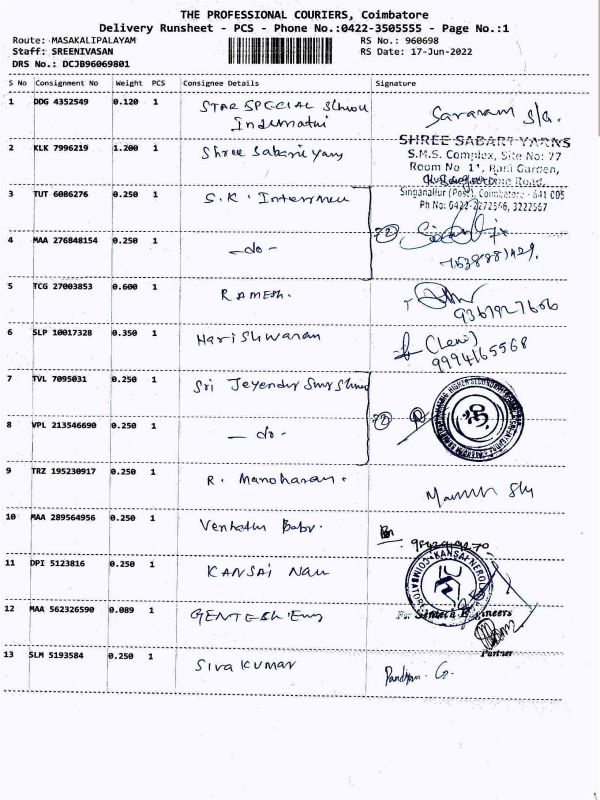 THE PROFESSIONAL COURIERS, Coimbatore
Delivery Runsheet - PCS - Phone No.:0422-3505555 - Page No.:1
Route: MASAKALIPALAYAM RS No.: 960698
Staff: SREENIVASAN RS Date: 17-Jun-2022
DRS No.: DCJB96069801
S No Consignment No Weight PCS Consignee Details Signature
1 DDG 4352549 0.120 1 STAR SPECIAL School
Indumathi
2 KLK 7996219 1.200 1 Shree Sabari yarn
SHREE SABARI YARNS
S.M.S. Complex, Site No: 77
Room No 1", Rani Garden,
Singanallur (Post), Coimbatore - 641 005
Ph No: 0422-2272566, 3222567
3 TUT 6086276 0.250 1 S.K.
4 MAA 276848154 0.250 1 - do - 72
5 TCG 27003853 0.600 1 RAMESH.
6 SLP 10017328 0.350 1 Harishwaran
9994165568
7 TVL 7095031 0.250 1 Sri Jeyendra
8 VPL 213546690 0.250 1 - do - 72
9 TRZ 195230917 0.250 1 R. Manoharan.
10 MAA 289564956 0.250 1 Babu.
11 DPI 5123816 0.250 1 KANSAI
KANSAI NEROLAC COIMBATORE
12 MAA 562326590 0.089 1 Eng
For Engineers
Partner
13 SLM 5193584 0.250 1 Siva KUMAR G.